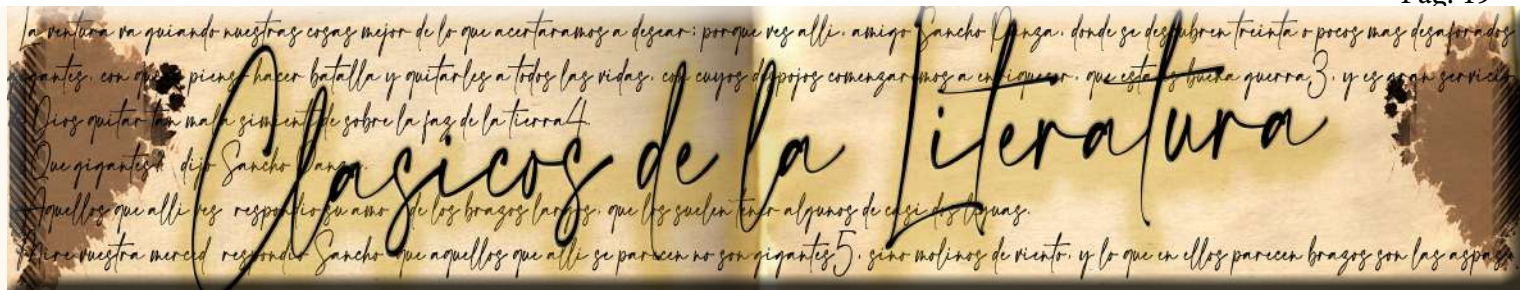 Pág. 19
La ventura va guiando nuestras cosas mejor de lo que acertaramos a desear; porque ves alli, amigo Sancho Panza, donde se descubren treinta o pocos mas desaforados
gigantes, con quien pienso hacer batalla y quitarles a todos las vidas, con cuyos despojos comenzaremos a enriquecer, que esta es buena guerra3, y es gran servicio
Dios quitar tan mala simiente de sobre la faz de la tierra4.
Que gigantes? dijo Sancho Panza.
Aquellos que alli ves respondio su amo de los brazos largos, que los suelen tener algunos de casi dos leguas.
Mire vuestra merced respondio Sancho que aquellos que alli se parecen no son gigantes5, sino molinos de viento, y lo que en ellos parecen brazos son las aspas,
Clasicos de la Literatura